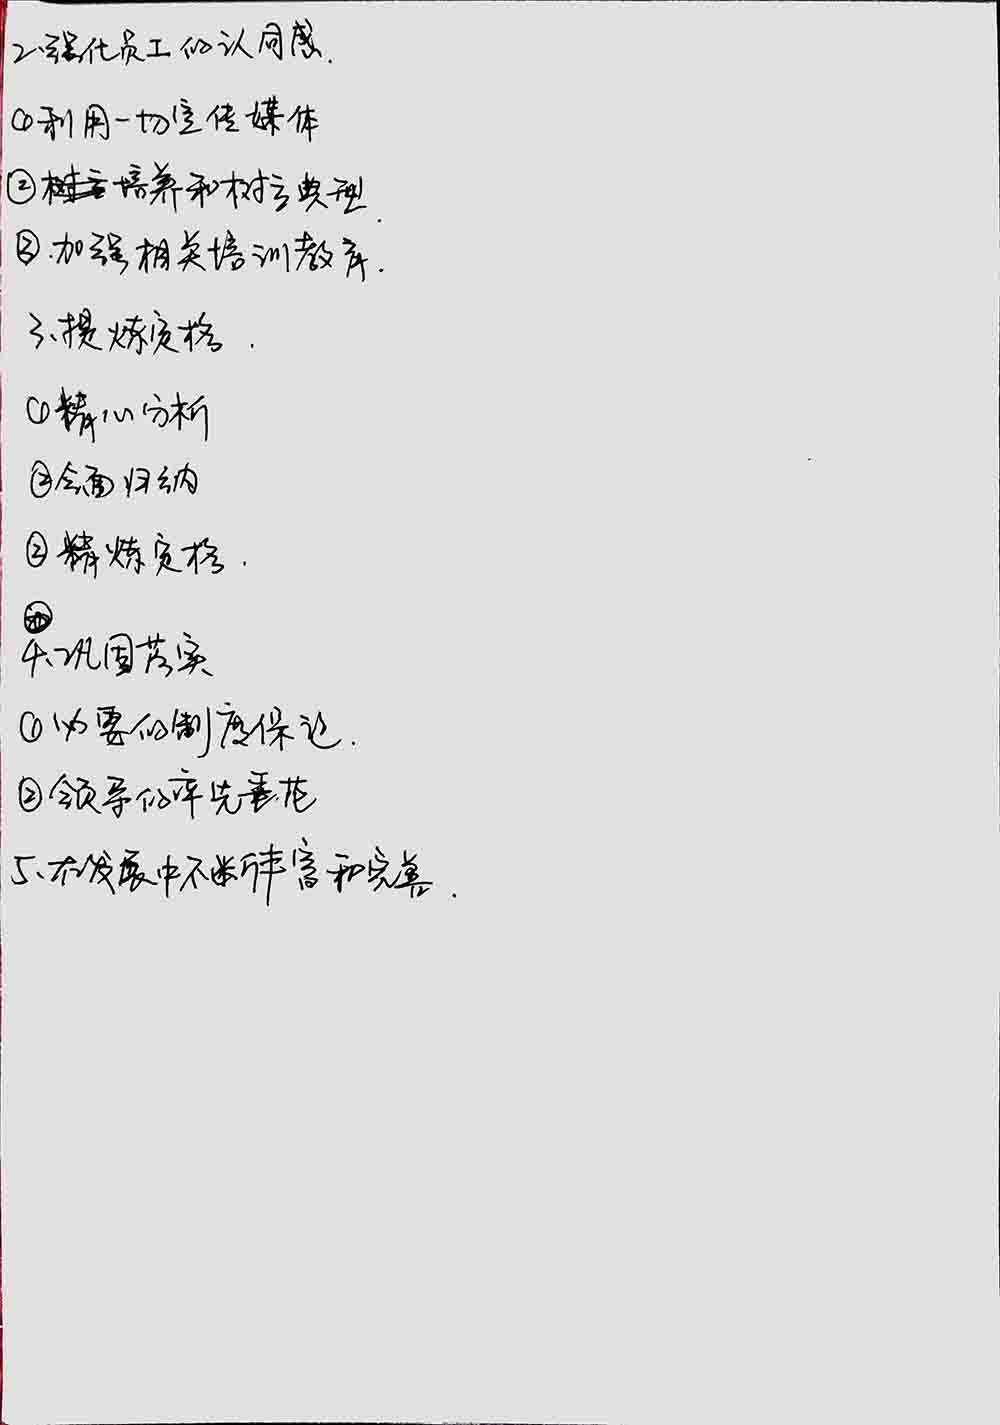 2、强化员工的认同感.
①利用一切宣传媒体
②培养和树立典型.
③.加强相关培训教育.
3、提炼定格.
①精心分析
②全面归纳
③精炼定格.
4、巩固落实
①必要的制度保证.
②领导的率先垂范
5、在发展中不断丰富和完善.